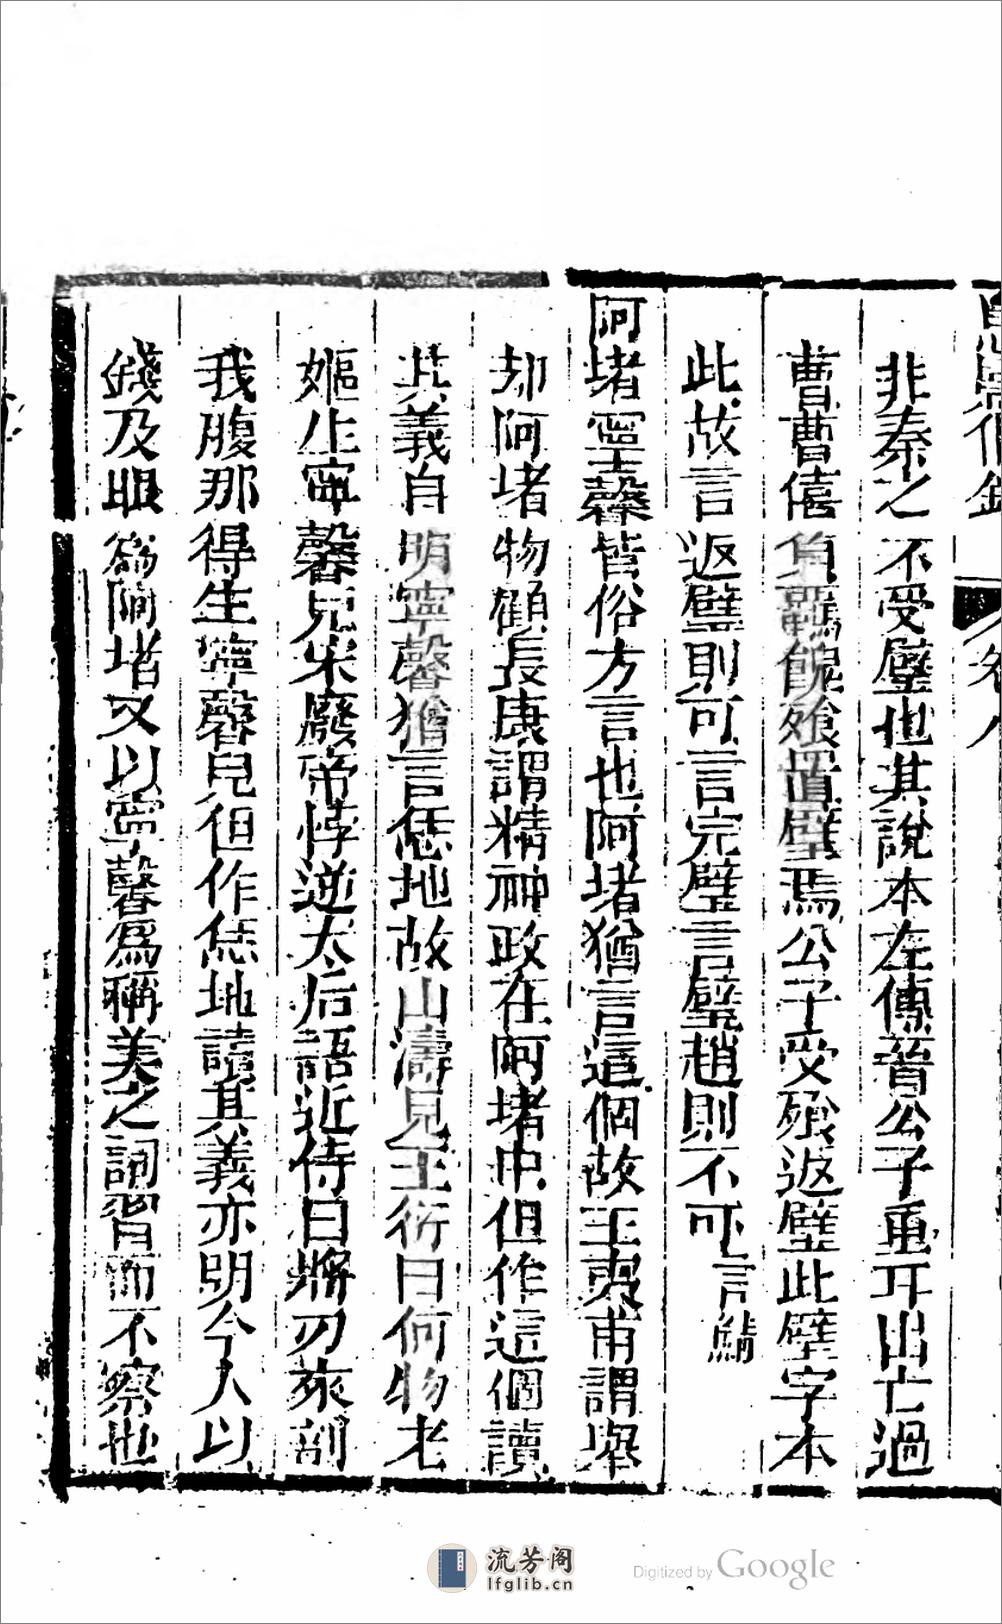 非秦之不受璧也其說本左傳晉公子重耳出亡過
曹曹僖負羈餽飧置璧焉公子受飧返璧此璧字本
此故言返璧則可言完璧言璧趙則不可言鯖
阿堵寧馨皆俗方言也阿堵猶言這個故王夷甫謂舉
却阿堵物顧長康謂精神政在阿堵中但作這個讀
其義自明寧馨猶言恁地故山濤見王衍曰何物老
嫗生寧馨兒宋廢帝悖逆太后語近侍曰將刀來剖
我腹那得生寧馨兒但作恁地讀其義亦明今人以
錢及眼為阿堵又以寧馨爲稱美之詞習而不察也
卷八
流芳阁
lfglib.cn
Digitized by Google